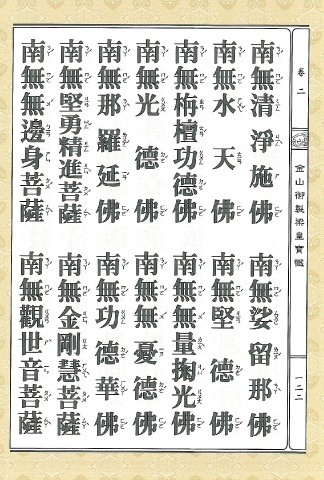 卷二
金山御製梁皇寶懺
一二二
南無清淨施佛　南無娑留那佛
南無水天佛　南無堅德佛
南無栴檀功德佛　南無無量掬光佛
南無光德佛　南無無憂德佛
南無那羅延佛　南無功德華佛
南無堅勇精進菩薩　南無金剛慧菩薩
南無無邊身菩薩　南無觀世音菩薩